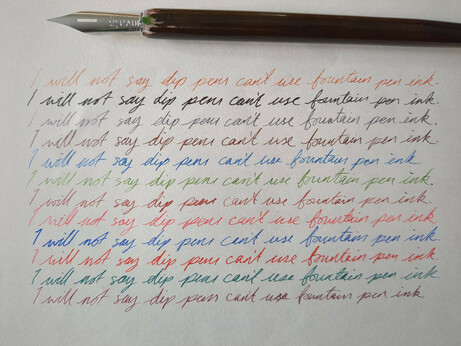 I will not say dip pens can't use fountain pen ink.
I will not say dip pens can't use fountain pen ink.
I will not say dip pens can't use fountain pen ink.
I will not say dip pens can't use fountain pen ink.
I will not say dip pens can't use fountain pen ink.
I will not say dip pens can't use fountain pen ink.
I will not say dip pens can't use fountain pen ink.
I will not say dip pens can't use fountain pen ink.
I will not say dip pens can't use fountain pen ink.
I will not say dip pens can't use fountain pen ink.
I will not say dip pens can't use fountain pen ink.
I will not say dip pens can't use fountain pen ink.